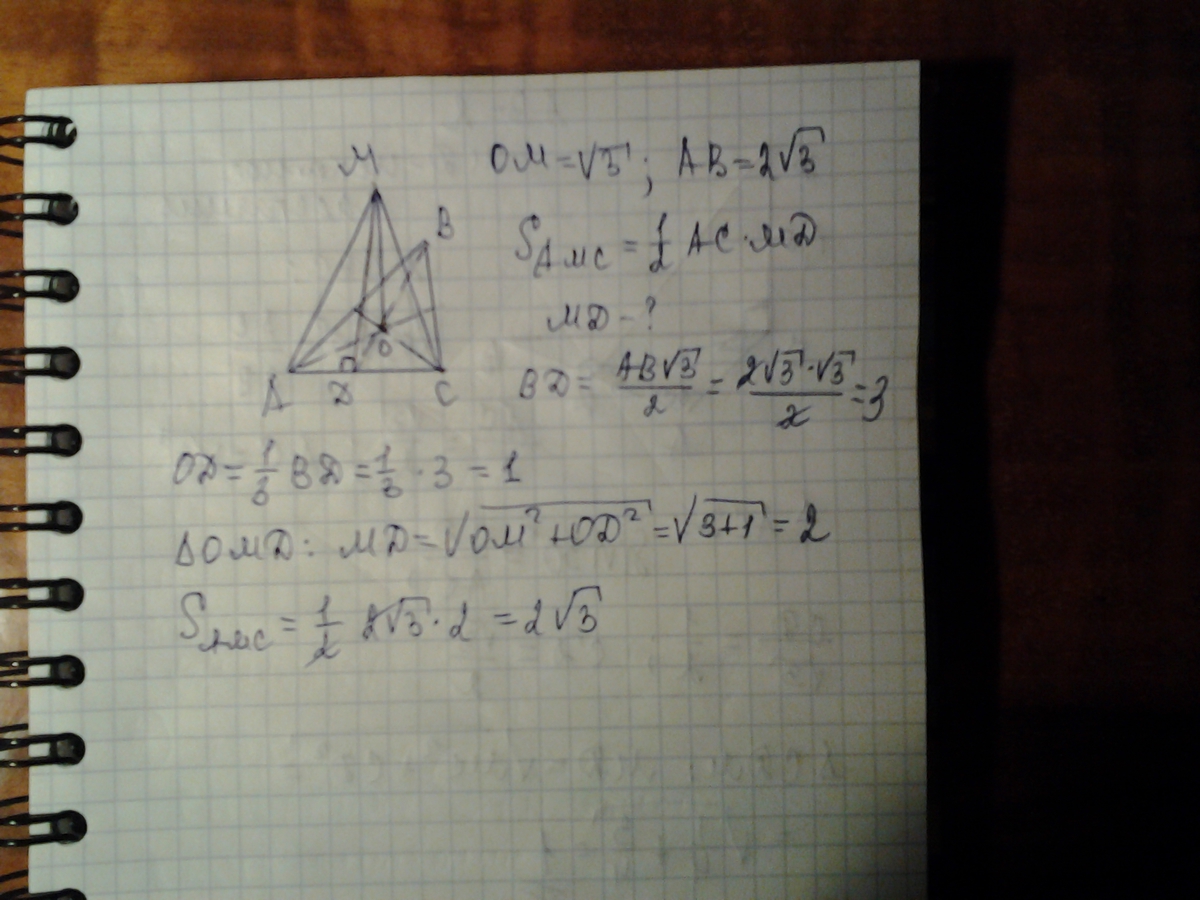 M
B
O
A D C
OM = √3 ; AB = 2√3
S_AMC = 1/2 AC · MD
MD - ?
BD = AB√3/2 = 2√3·√3/2 = 3
OD = 1/3 BD = 1/3 · 3 = 1
ΔOMD: MD = √(OM² + OD²) = √(3+1) = 2
S_AMC = 1/2 2√3 · 2 = 2√3